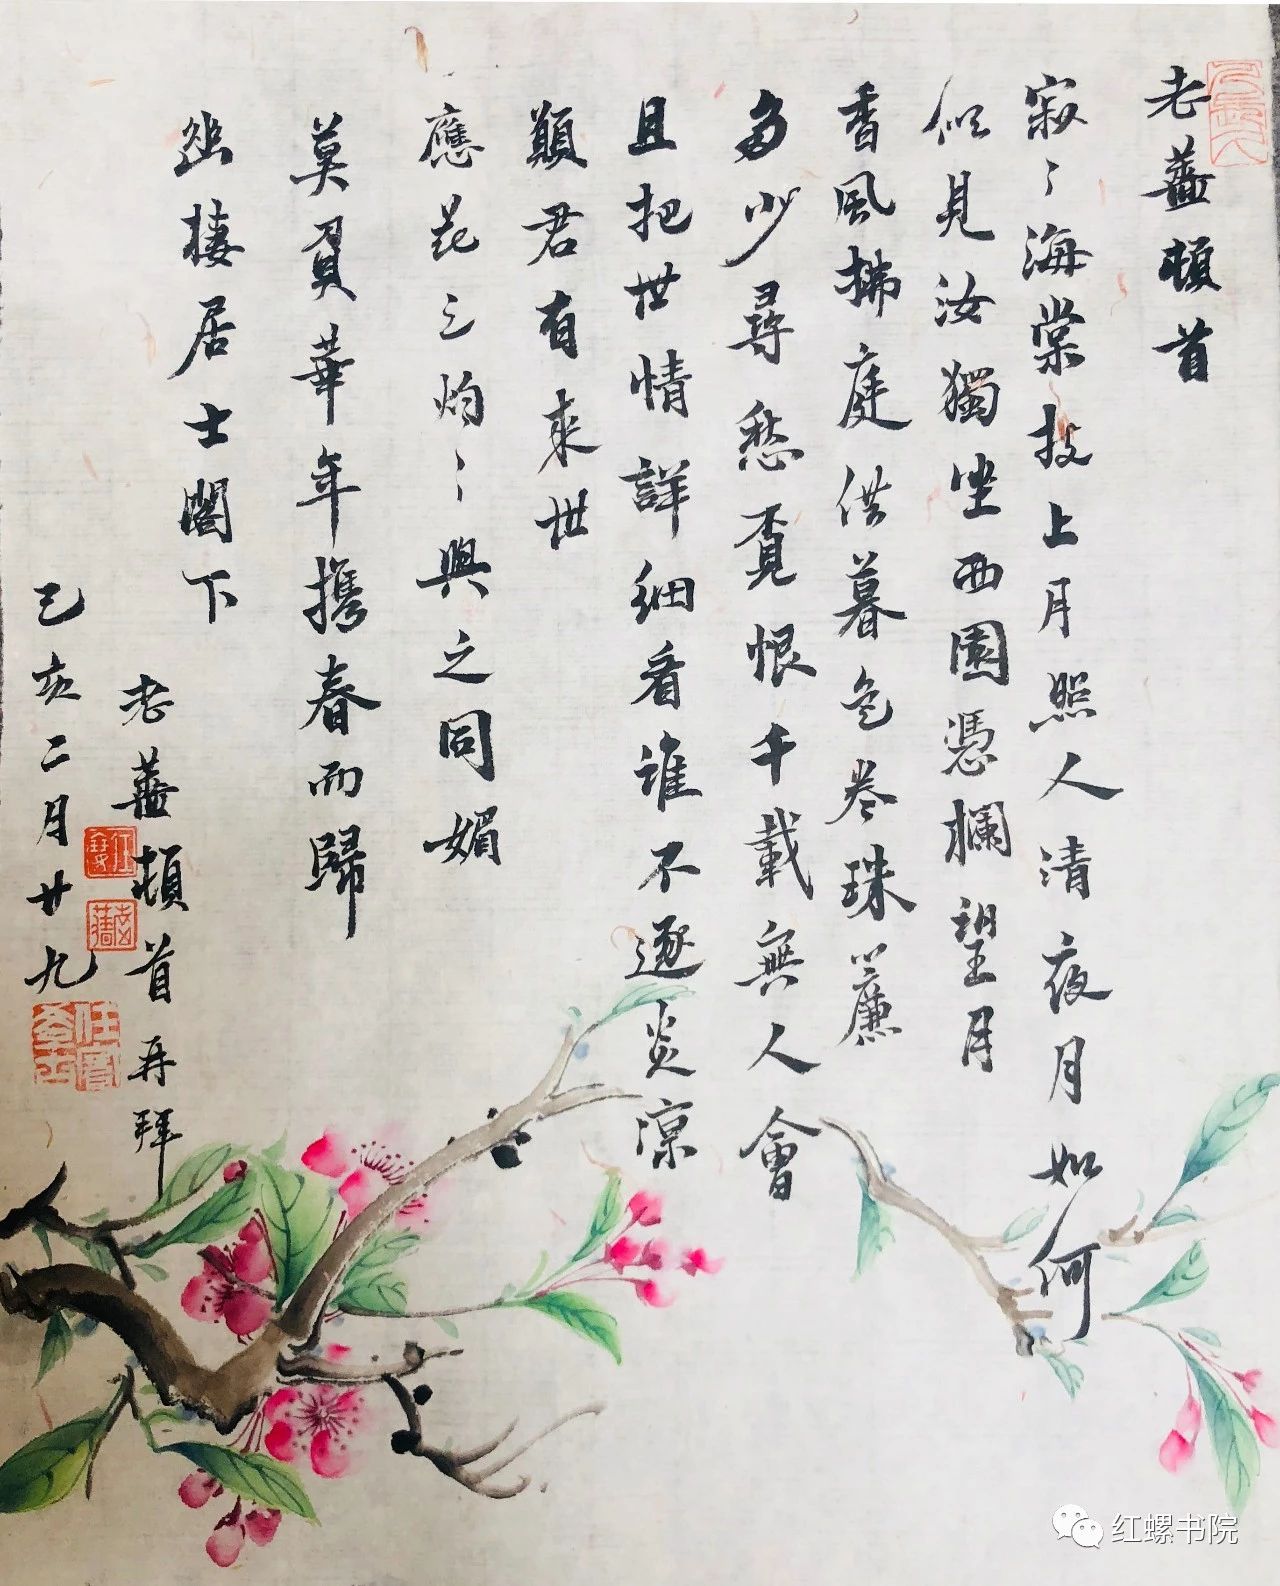 老薔頓首
寂〻海棠枝上月照人清夜月如何
似見汝獨坐西園憑欄望月
香風拂庭供暮色卷珠簾
多少尋愁覓恨千載無人會
且把世情詳細看誰不逐炎涼
願君有来世
應花之灼〻與之同媚
莫負華年携春而歸
幽棲居士閣下
老薔頓首再拜
己亥二月廿九
红螺书院